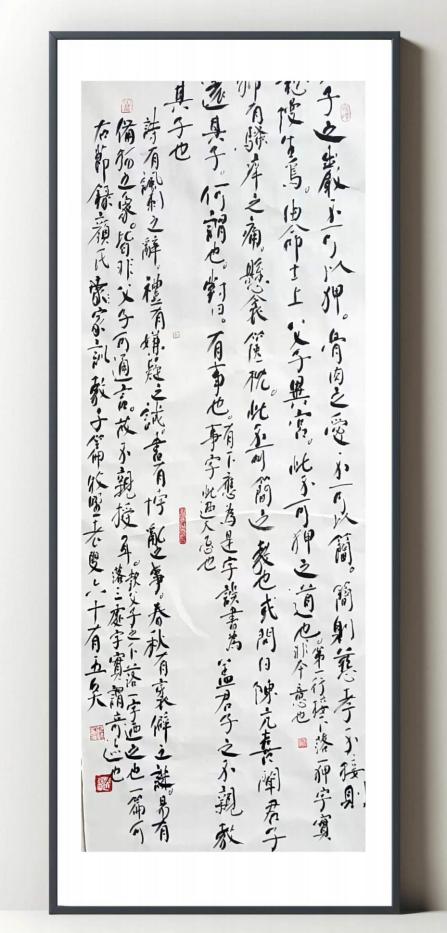 子之嚴不可以狎。骨肉之愛不可以簡。簡則慈孝不接則
怠慢生焉。由命士上父子異宮。此不可狎之道也第一行接下落一狎字實非今意也
抑有騷痒之痛。懸衾篋枕。此不可簡之教也或問曰陳亢喜聞君子
遠其子。何謂也。對曰。有事也。事字有下應為是字誤書為此迺大忌也蓋君子之不親教
其子也
詩有諷刺之辭。禮有嫌疑之誡。書有悖亂之事。春秋有衺僻之譏。易有
備物之象。皆非父子可通言。故不親授耳。父子之下落一字迺之也一篇可落三處字實謂奇迹也
右節錄顏氏家訓教子篇老叟六十有五矣